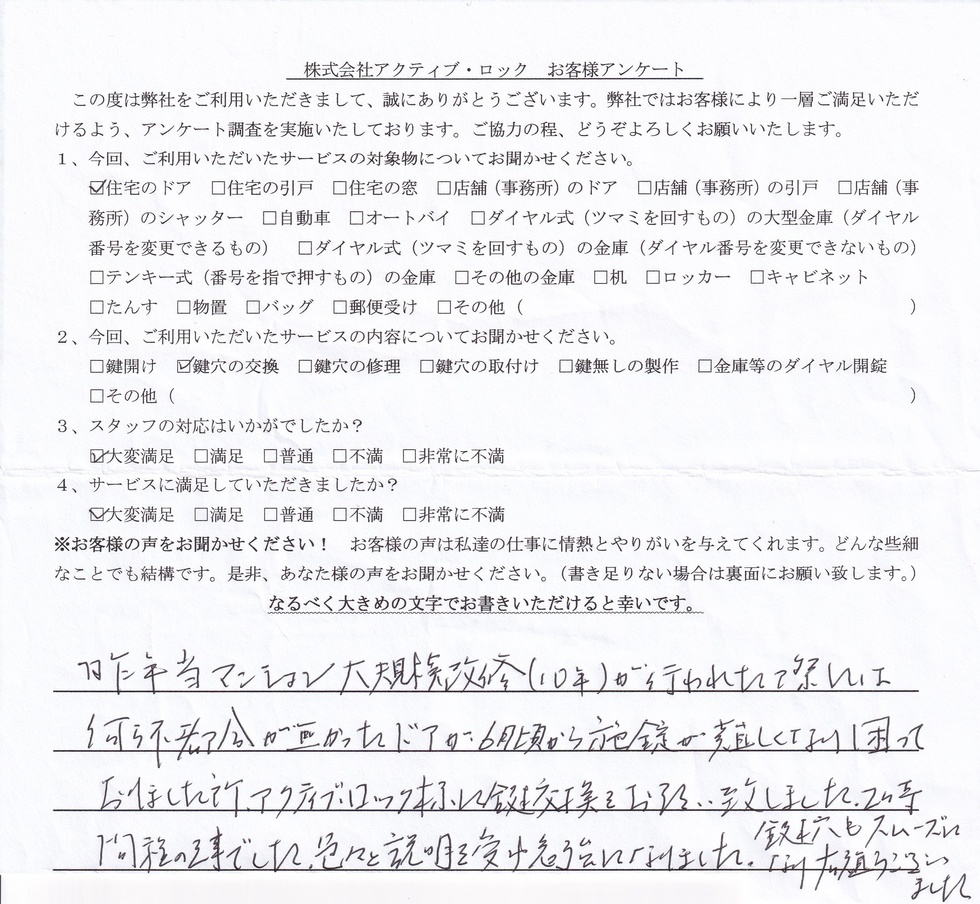 株式会社アクティブ・ロック　お客様アンケート
この度は弊社をご利用いただきまして、誠にありがとうございます。弊社ではお客様により一層ご満足いただ
けるよう、アンケート調査を実施いたしております。ご協力の程、どうぞよろしくお願いいたします。
１、今回、ご利用いただいたサービスの対象物についてお聞かせください。
☑住宅のドア　□住宅の引戸　□住宅の窓　□店舗（事務所）のドア　□店舗（事務所）の引戸　□店舗（事
務所）のシャッター　□自動車　□オートバイ　□ダイヤル式（ツマミを回すもの）の大型金庫（ダイヤル
番号を変更できるもの）　□ダイヤル式（ツマミを回すもの）の金庫（ダイヤル番号を変更できないもの）
□テンキー式（番号を指で押すもの）の金庫　□その他の金庫　□机　□ロッカー　□キャビネット
□たんす　□物置　□バッグ　□郵便受け　□その他（　　　）
２、今回、ご利用いただいたサービスの内容についてお聞かせください。
□鍵開け　☑鍵穴の交換　□鍵穴の修理　□鍵穴の取付け　□鍵無しの製作　□金庫等のダイヤル開錠
□その他（　　　）
３、スタッフの対応はいかがでしたか？
☑大変満足　□満足　□普通　□不満　□非常に不満
４、サービスに満足していただきましたか？
☑大変満足　□満足　□普通　□不満　□非常に不満
※お客様の声をお聞かせください！　お客様の声は私達の仕事に情熱とやりがいを与えてくれます。どんな些細
なことでも結構です。是非、あなた様の声をお聞かせください。（書き足りない場合は裏面にお願い致します。）
なるべく大きめの文字でお書きいただけると幸いです。
昨年当マンション大規模改修(10年)が行われた際には
何ら不都合が無かったドアが、6月頃から施錠が難しくなり困って
おりました所、アクティブ・ロック様に鍵交換をお願い致しました。
間程の工事でした。色々と説明を受け勉強になりました。
鍵穴もスムーズに
なり有難うござい
ました